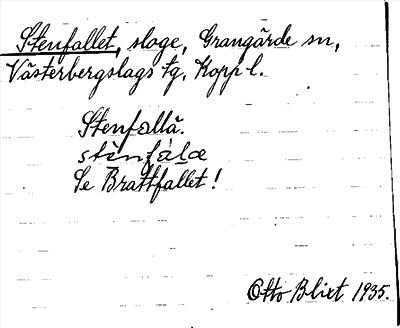 Stenfallet, sloge, Grangärde sn,
Västerbergslags tg, Kopp l.
Stenfallä.
stènfàlæ
Se Brattfallet!
Otto Blixt 1935.